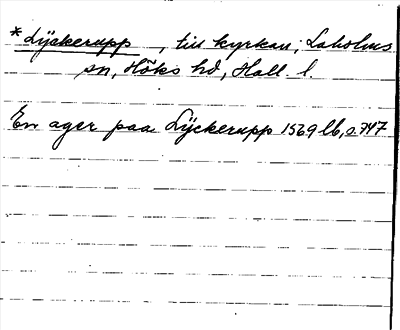 *Lÿckerupp, till kyrkan, Laholms
sn, Höks hd, Hall. l.
En ager paa Lÿckerupp 1569 lb, s 747